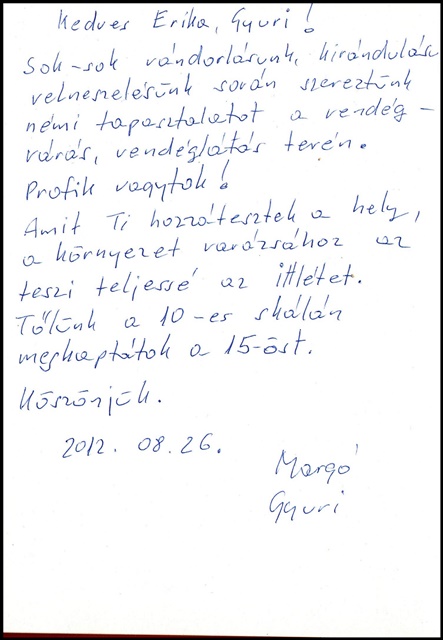 Kedves Erika, Gyuri!
Sok-sok vándorlásunk, kirándulásu
velneselésünk során szereztünk
némi tapasztalatot a vendég-
várás, vendéglátás terén.
Profik vagytok!
Amit Ti hozzátesztek a hely,
a környezet varázsához az
teszi teljessé az ittlétet.
Tőlünk a 10-es skálán
megkaptátok a 15-öst.
Köszönjük.
2012. 08. 26.
Margó
Gyuri